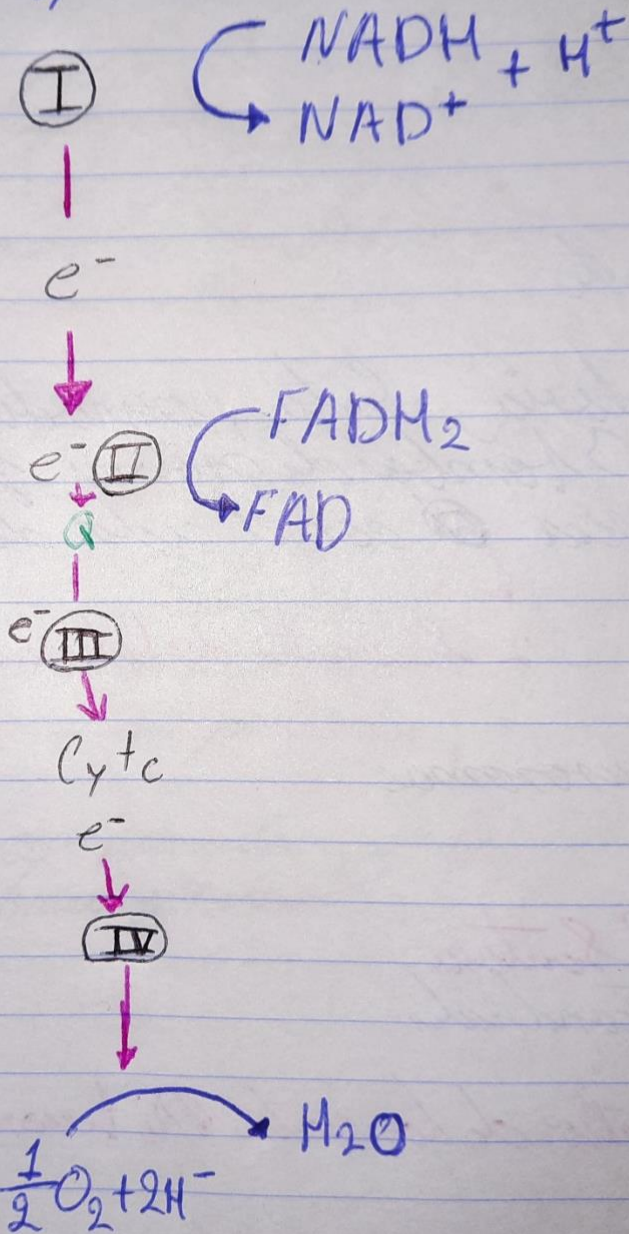 NADH + H⁺
I
NAD⁺
e⁻
FADH₂
e⁻ II
FAD
Q
e⁻ III
Cytc
e⁻
IV
H₂O
½O₂+2H⁻